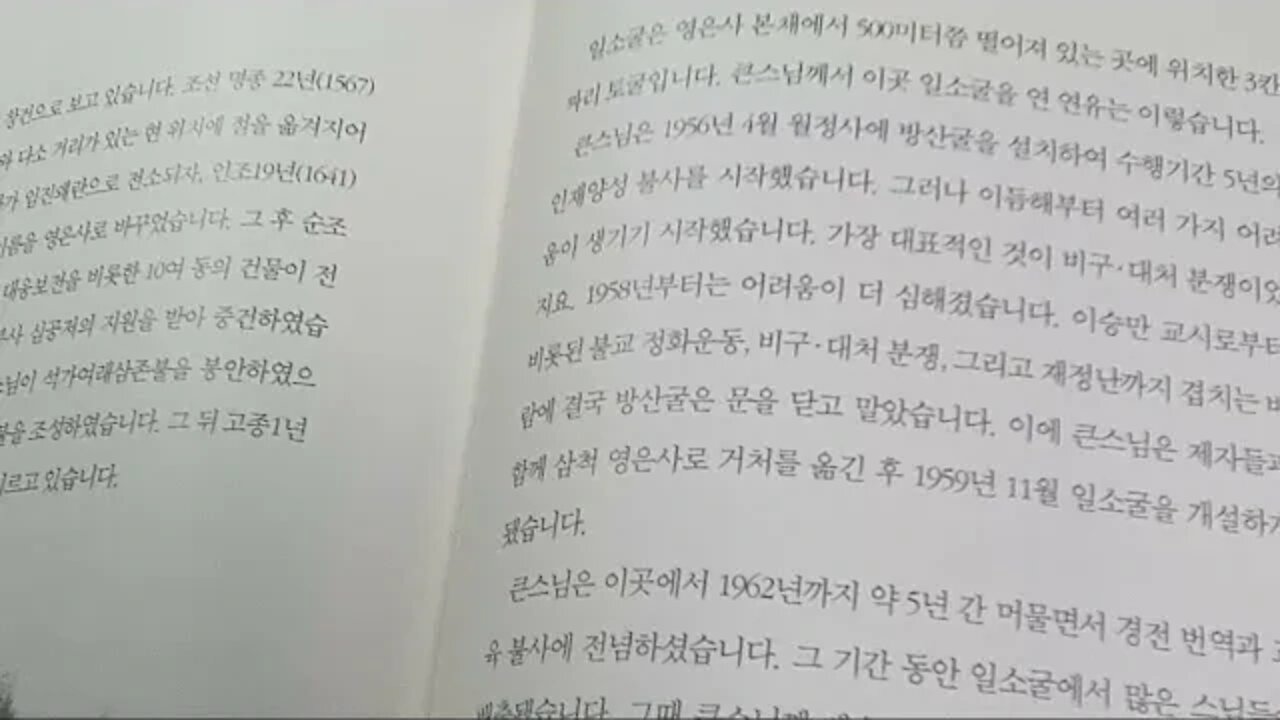 창건으로 보고 있습니다. 조선 명종 22년(1567)
다소 거리가 있는 현 위치에 절을 옮겨지어
임진왜란으로 전소되자, 인조19년(1641)
이름을 영은사로 바꾸었습니다. 그 후 순조
대웅보전을 비롯한 10여 동의 건물이 전
심공저의 지원을 받아 중건하였습
석가여래삼존불을 봉안하였으
조성하였습니다. 그 뒤 고종1년
이르고 있습니다.
일소굴은 영은사 본채에서 500미터쯤 떨어져 있는 곳에 위치한 3칸
짜리 토굴입니다. 큰스님께서 이곳 일소굴을 연 연유는 이렇습니다.
큰스님은 1956년 4월 월정사에 방산굴을 설치하여 수행기간 5년의
인재양성 불사를 시작했습니다. 그러나 이듬해부터 여러 가지 어려
움이 생기기 시작했습니다. 가장 대표적인 것이 비구·대처 분쟁이었
지요. 1958년부터는 어려움이 더 심해졌습니다. 이승만 교시로부터
비롯된 불교 정화운동, 비구·대처 분쟁, 그리고 재정난까지 겹치는 바
람에 결국 방산굴은 문을 닫고 말았습니다. 이에 큰스님은 제자들과
함께 삼척 영은사로 거처를 옮긴 후 1959년 11월 일소굴을 개설하게
됐습니다.
큰스님은 이곳에서 1962년까지 약 5년 간 머물면서 경전 번역과
육 불사에 전념하셨습니다. 그 기간 동안 일소굴에서 많은 스님들
배출됐습니다. 그때 큰스님께